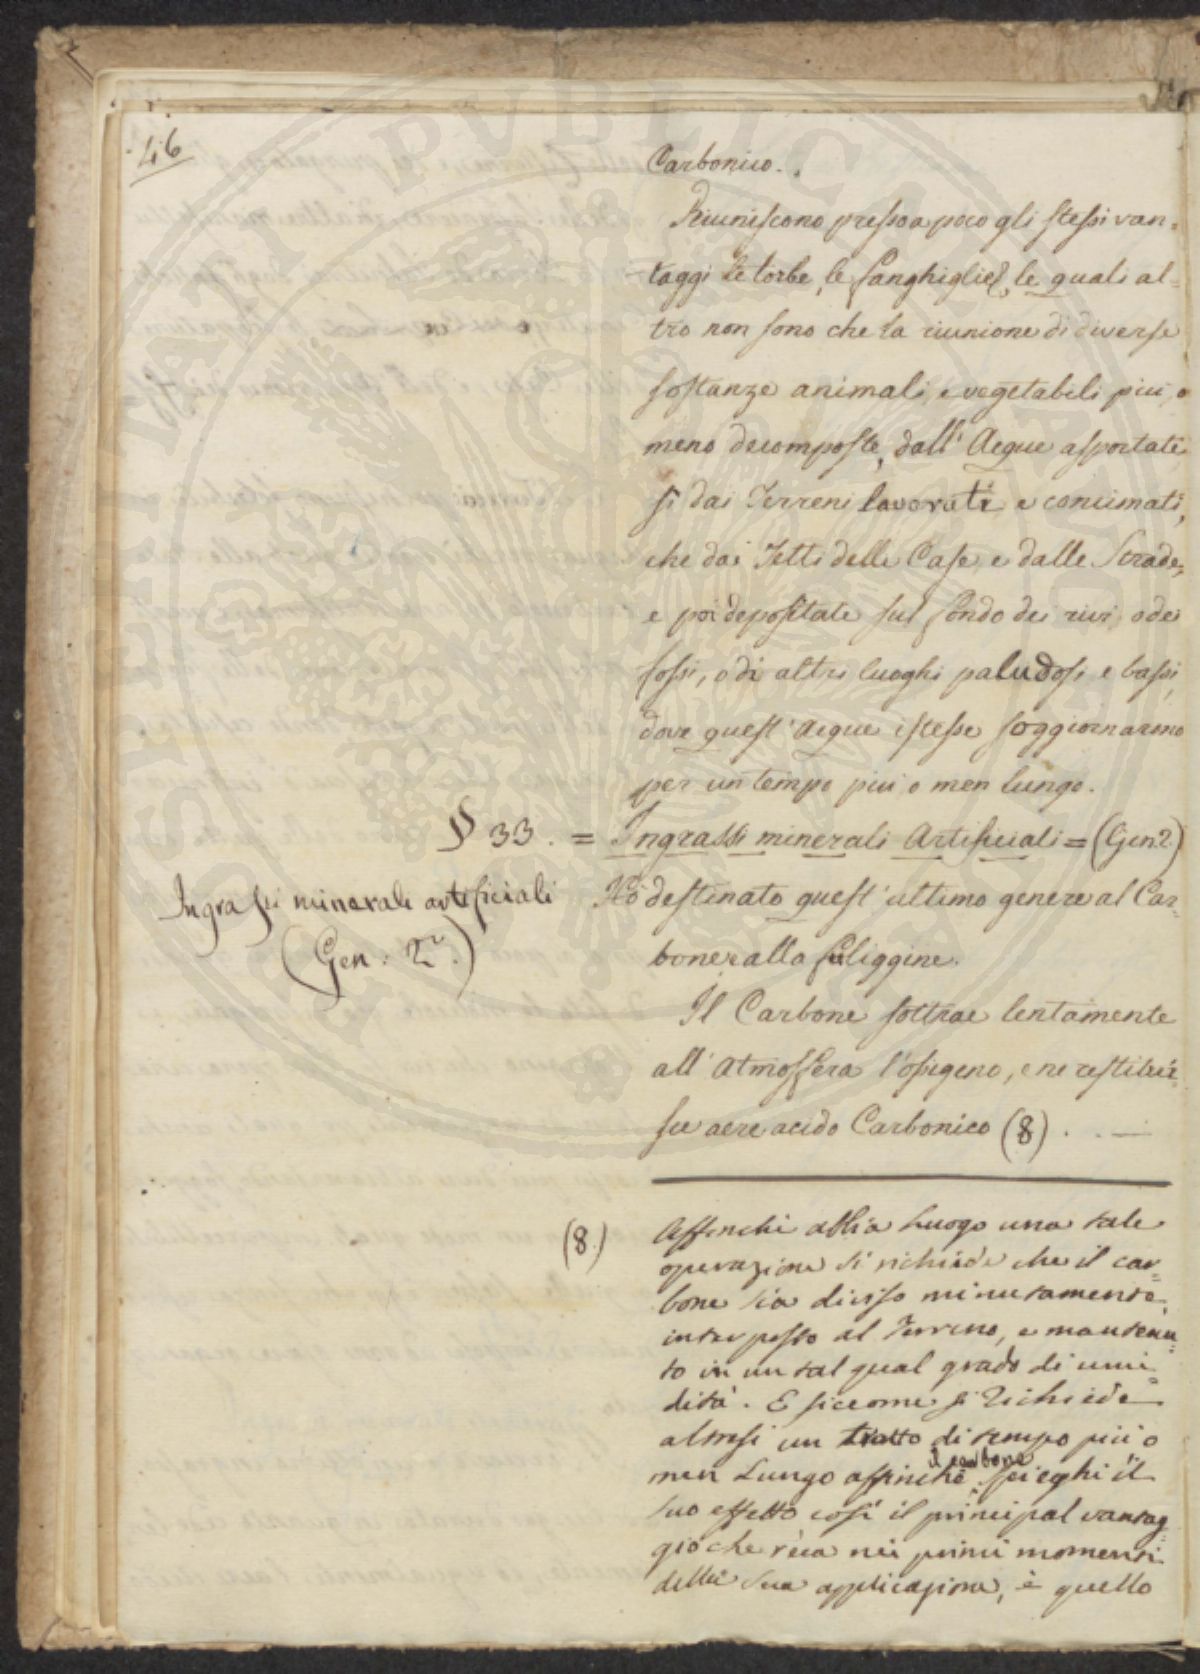 46
Carbonico.
Riuniscono presso a poco gli stessi van-
taggi le torbe, le fanghiglie, le quali al-
tro non sono che la riunione di diverse
sostanze animali, e vegetabili più, o
meno decomposte, dall'Acque asportate
sì dai Terreni lavorati e concimati,
che dai Tetti delle Case, e dalle Strade,
e poi depositate sul fondo dei rivi, o dei
fossi, o di altri luoghi paludosi e bassi,
dove quest'acque istesse soggiornarono
per un tempo più, o men lungo.
§ 33. = Ingrassi minerali Artificiali = (Gen. 2.)
Ingrassi minerali artificiali
(Gen: 2.)
Hò destinato quest'ultimo genere al Car-
bone e alla fuliggine.
Il Carbone sottrae lentamente
all'Atmosfera l'ossigeno, e ne restitui-
sce aere acido Carbonico (8)
(8.) Affinchè abbia luogo una tale
operazione si richiede che il car-
bone sia diviso minutamente,
interposto al Terreno, e mantenu-
to in un tal qual grado di umi-
dità. E siccome si richiede
altresì un tratto di tempo più o
men lungo affinchè il carbone spieghi il
suo effetto così il principal vantag-
gio che rèca nei primi momenti
della sua applicazione, è quello